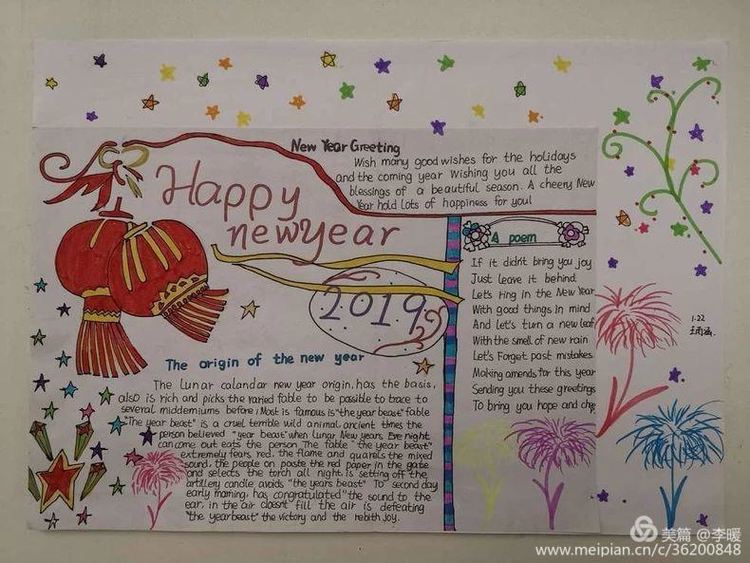 New Year Greeting
Wish many good wishes for the holidays
and the coming year wishing you all the
blessings of a beautiful season. A cheery New
Year hold lots of happiness for you!
Happy
new year
2019
A poem
If it didn't bring you joy
Just leave it behind
Let's ring in the New Year
With good things in mind
And let's turn a new leaf
With the smell of new rain
Let's Forget past mistakes
Making amends for this year
Sending you these greetings
To bring you hope and
The origin of the new year
The Lunar calandar new year origin, has the basis,
also is rich and picks the varied fable to be possible to trace to
several middemiums before; Most is famous is "the year beast" fable
"The year beast" is a cruel terrible wild animal, ancient times the
person believed "year beast" when lunar New years Eve night
can come out eats the person. The fable "the year beast"
extremely fears, red, the flame and quarels the mixed
sound, the people on paste the red paper in the gate
and selects the torch all night is setting off the
artillery candle avoids "the years beast" To second day
early morning, has congratulated "the sound to the
ear, in the air doesn't" fill the air is defeating
"the year beast" the victory and the rebith joy.
1.22
美篇 @李暖
www.meipian.cn/c/36200848